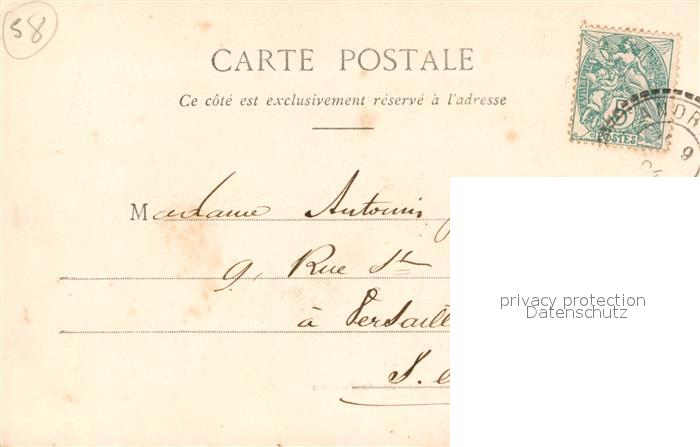 58
CARTE POSTALE
Ce côté est exclusivement réservé à l'adresse
5
POSTES
ANDR
9
Madame Antonin
9, Rue St
à Versaill
S.
privacy protection
Datenschutz